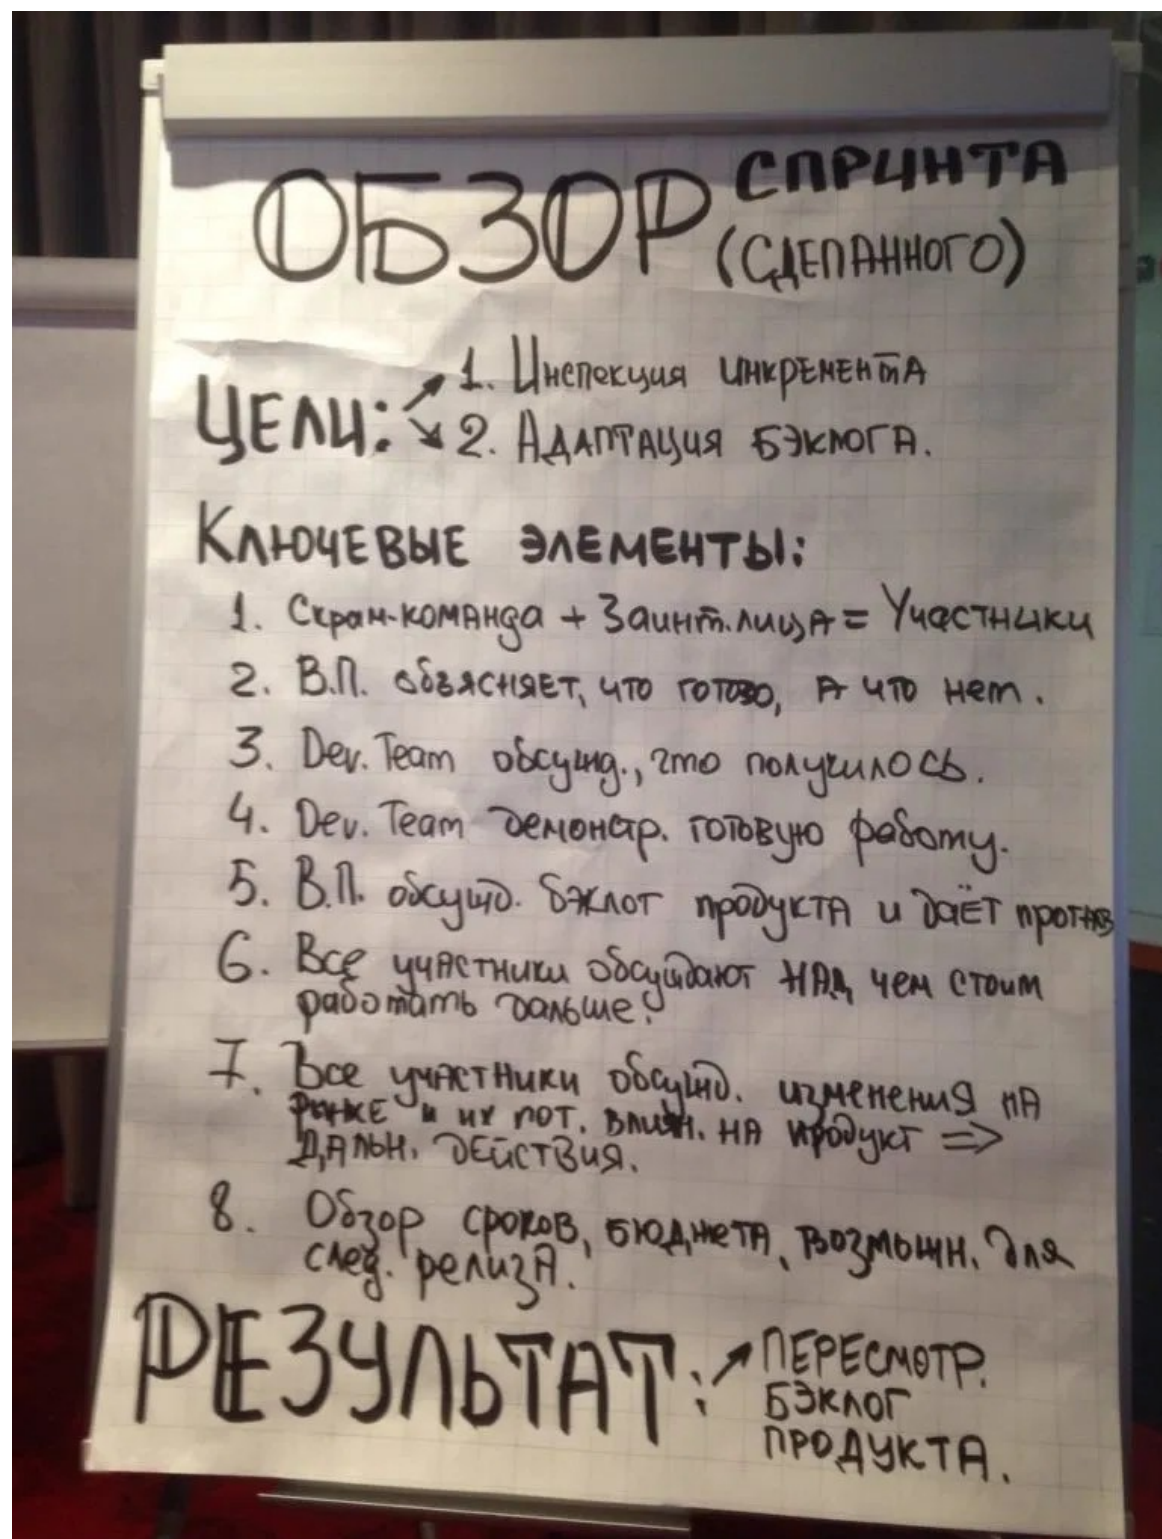 ОБЗОР СПРИНТА
(СДЕЛАННОГО)
ЦЕЛИ: 1. Инспекция инкремента
2. Адаптация бэклога.
Ключевые элементы:
1. Скрам-команда + Заинт. лица = Участники
2. В.П. объясняет, что готово, а что нет.
3. Dev. Team обсужд., что получилось.
4. Dev. Team демонстр. готовую работу.
5. В.П. обсужд. бэклог продукта и даёт прогноз
6. Все участники обсуждают над чем стоит
работать дальше?
7. Все участники обсужд. изменения на
рынке и их пот. влиян. на продукт =>
дальн. действия.
8. Обзор сроков, бюджета, возможн. для
след. релиза.
РЕЗУЛЬТАТ: ПЕРЕСМОТР.
БЭКЛОГ
ПРОДУКТА.